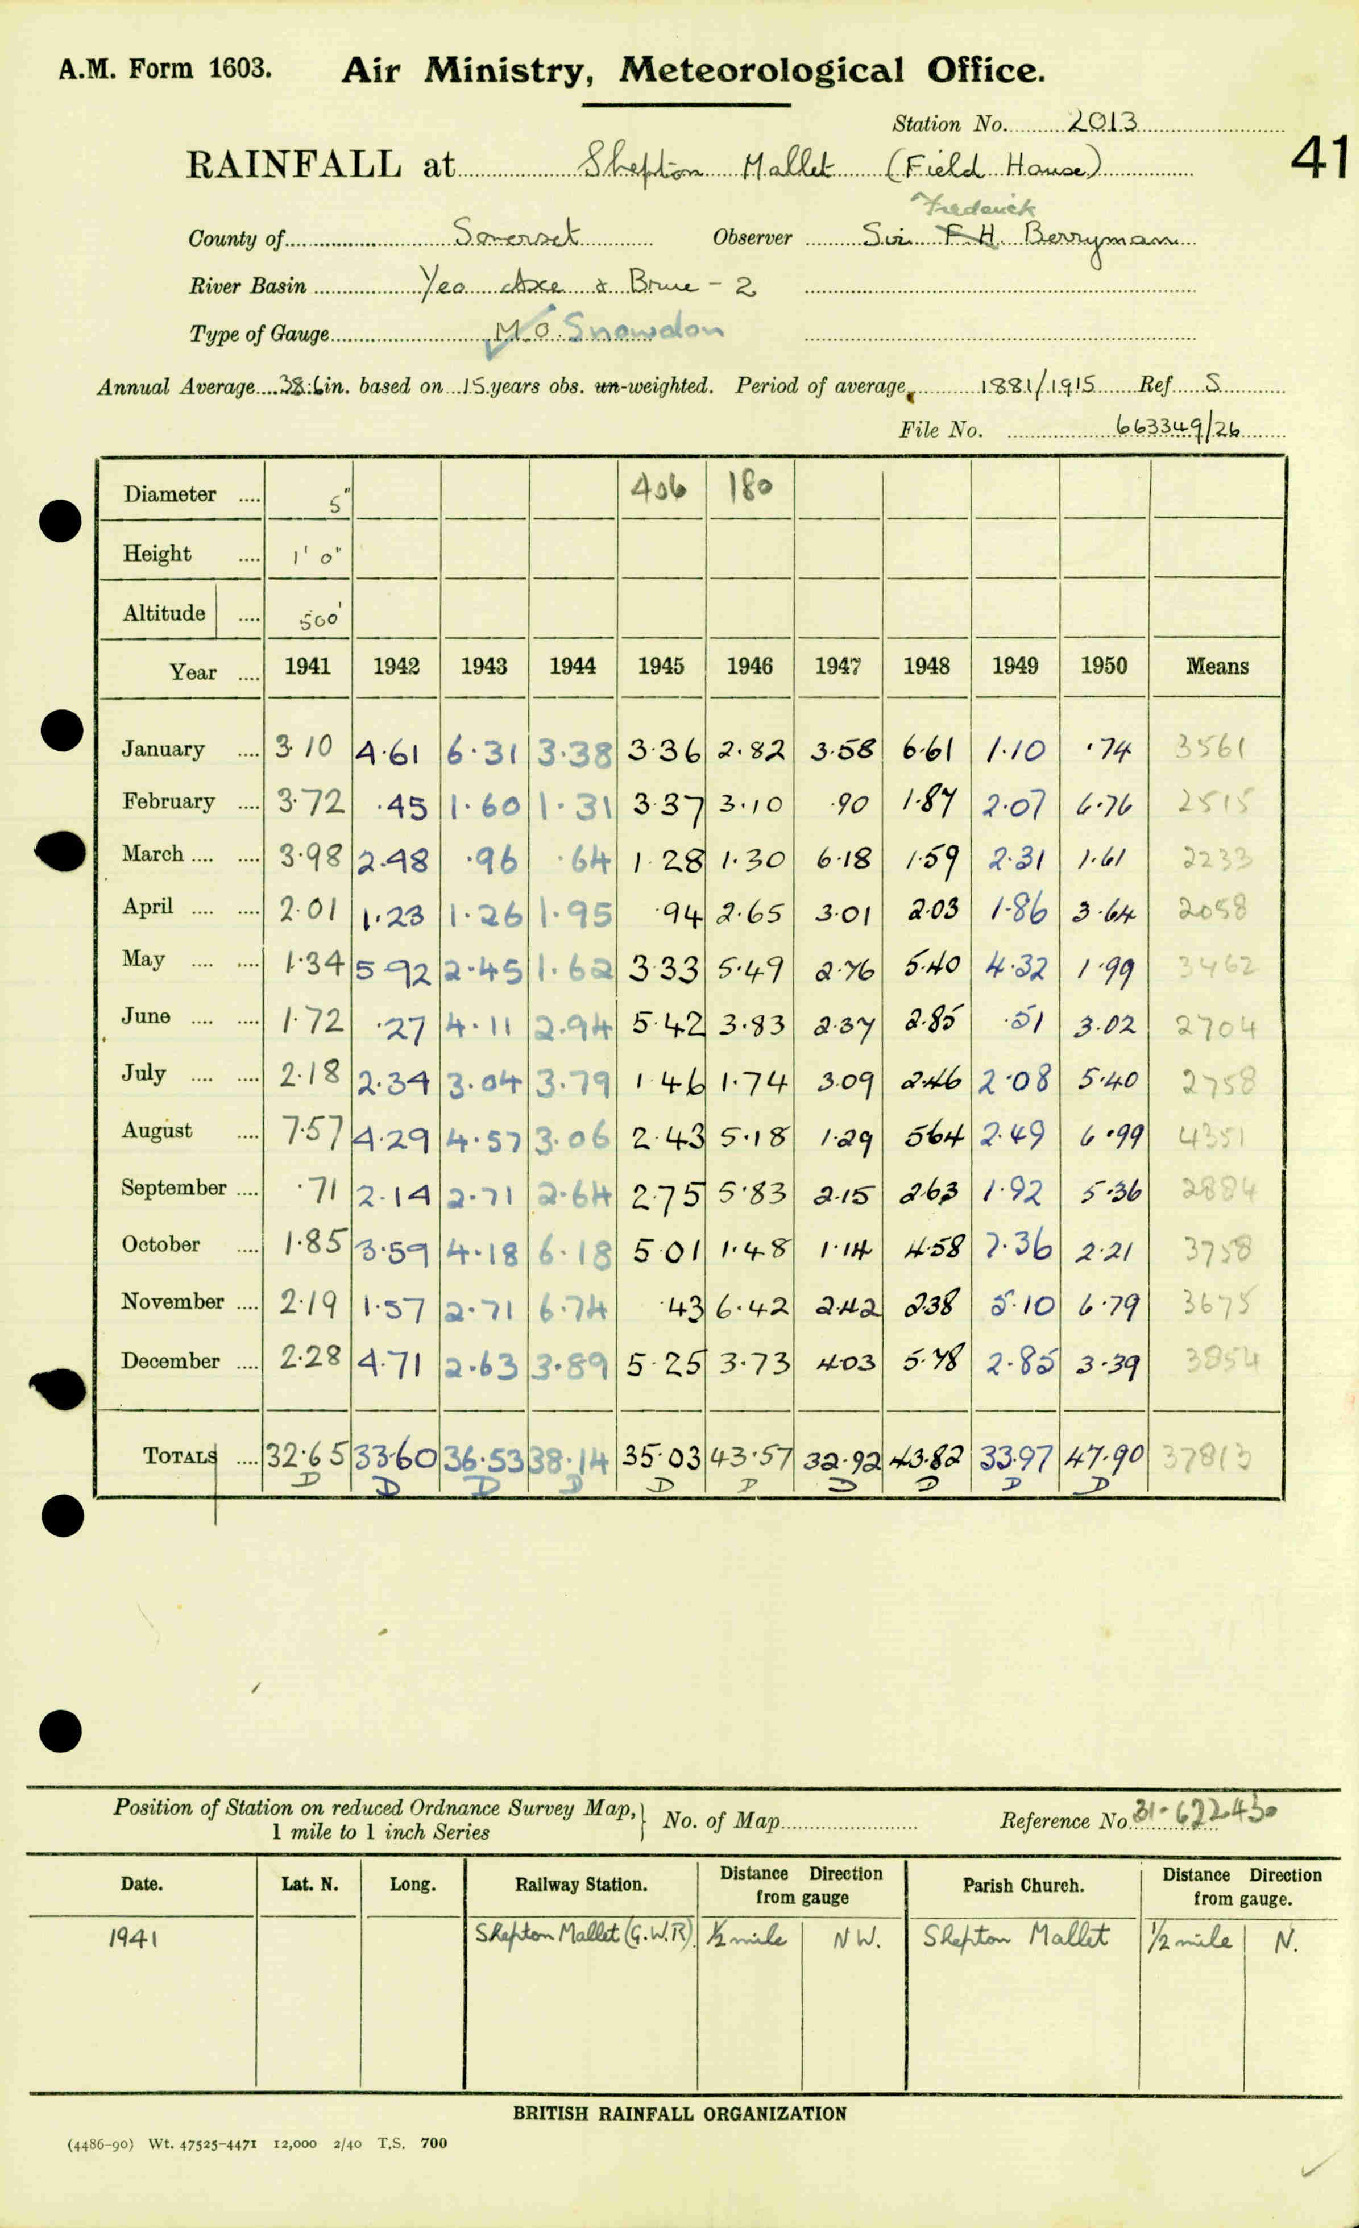 A.M. Form 1603. Air Ministry, Meteorological Office.
Station No. 2013
41
RAINFALL at Shepton Mallet (Field House)
Frederick
County of Somerset Observer Sir F.H. Berryman
River Basin Yeo Axe & Brue - 2
Type of Gauge M.O. Snowdon
Annual Average 38.6 in. based on 15 years obs. un-weighted. Period of average, 1881/1915 Ref S
File No. 663349/26
Diameter .... 5" 406 180
Height .... 1' 0"
Altitude .... 500'
Year .... 1941 1942 1943 1944 1945 1946 1947 1948 1949 1950 Means
January .... 3.10 4.61 6.31 3.38 3.36 2.82 3.58 6.61 1.10 .74 3561
February .... 3.72 .45 1.60 1.31 3.37 3.10 .90 1.87 2.07 6.76 2515
March .... .... 3.98 2.48 .96 .64 1.28 1.30 6.18 1.59 2.31 1.61 2233
April .... .... 2.01 1.23 1.26 1.95 .94 2.65 3.01 2.03 1.86 3.64 2058
May .... .... 1.34 5.92 2.45 1.62 3.33 5.49 2.76 5.40 4.32 1.99 3462
June .... .... 1.72 .27 4.11 2.94 5.42 3.83 2.37 2.85 .51 3.02 2704
July .... .... 2.18 2.34 3.04 3.79 1.46 1.74 3.09 2.46 2.08 5.40 2758
August .... 7.57 4.29 4.57 3.06 2.43 5.18 1.29 5.64 2.49 6.99 4351
September .... .71 2.14 2.71 2.64 2.75 5.83 2.15 2.63 1.92 5.36 2884
October .... 1.85 3.59 4.18 6.18 5.01 1.48 1.14 4.58 7.36 2.21 3758
November .... 2.19 1.57 2.71 6.74 .43 6.42 2.42 2.38 5.10 6.79 3675
December .... 2.28 4.71 2.63 3.89 5.25 3.73 4.03 5.78 2.85 3.39 3854
TOTALS .... 32.65 33.60 36.53 38.14 35.03 43.57 32.92 43.82 33.97 47.90 37813
D D D D D D D D D D
Position of Station on reduced Ordnance Survey Map, 1 mile to 1 inch Series } No. of Map Reference No. 31-622430
Date. Lat. N. Long. Railway Station. Distance Direction from gauge Parish Church. Distance Direction from gauge.
1941 Shepton Mallet (G.W.R) ½ mile NW. Shepton Mallet ½ mile N.
BRITISH RAINFALL ORGANIZATION
(4486-90) Wt. 47525-4471 12,000 2/40 T.S. 700